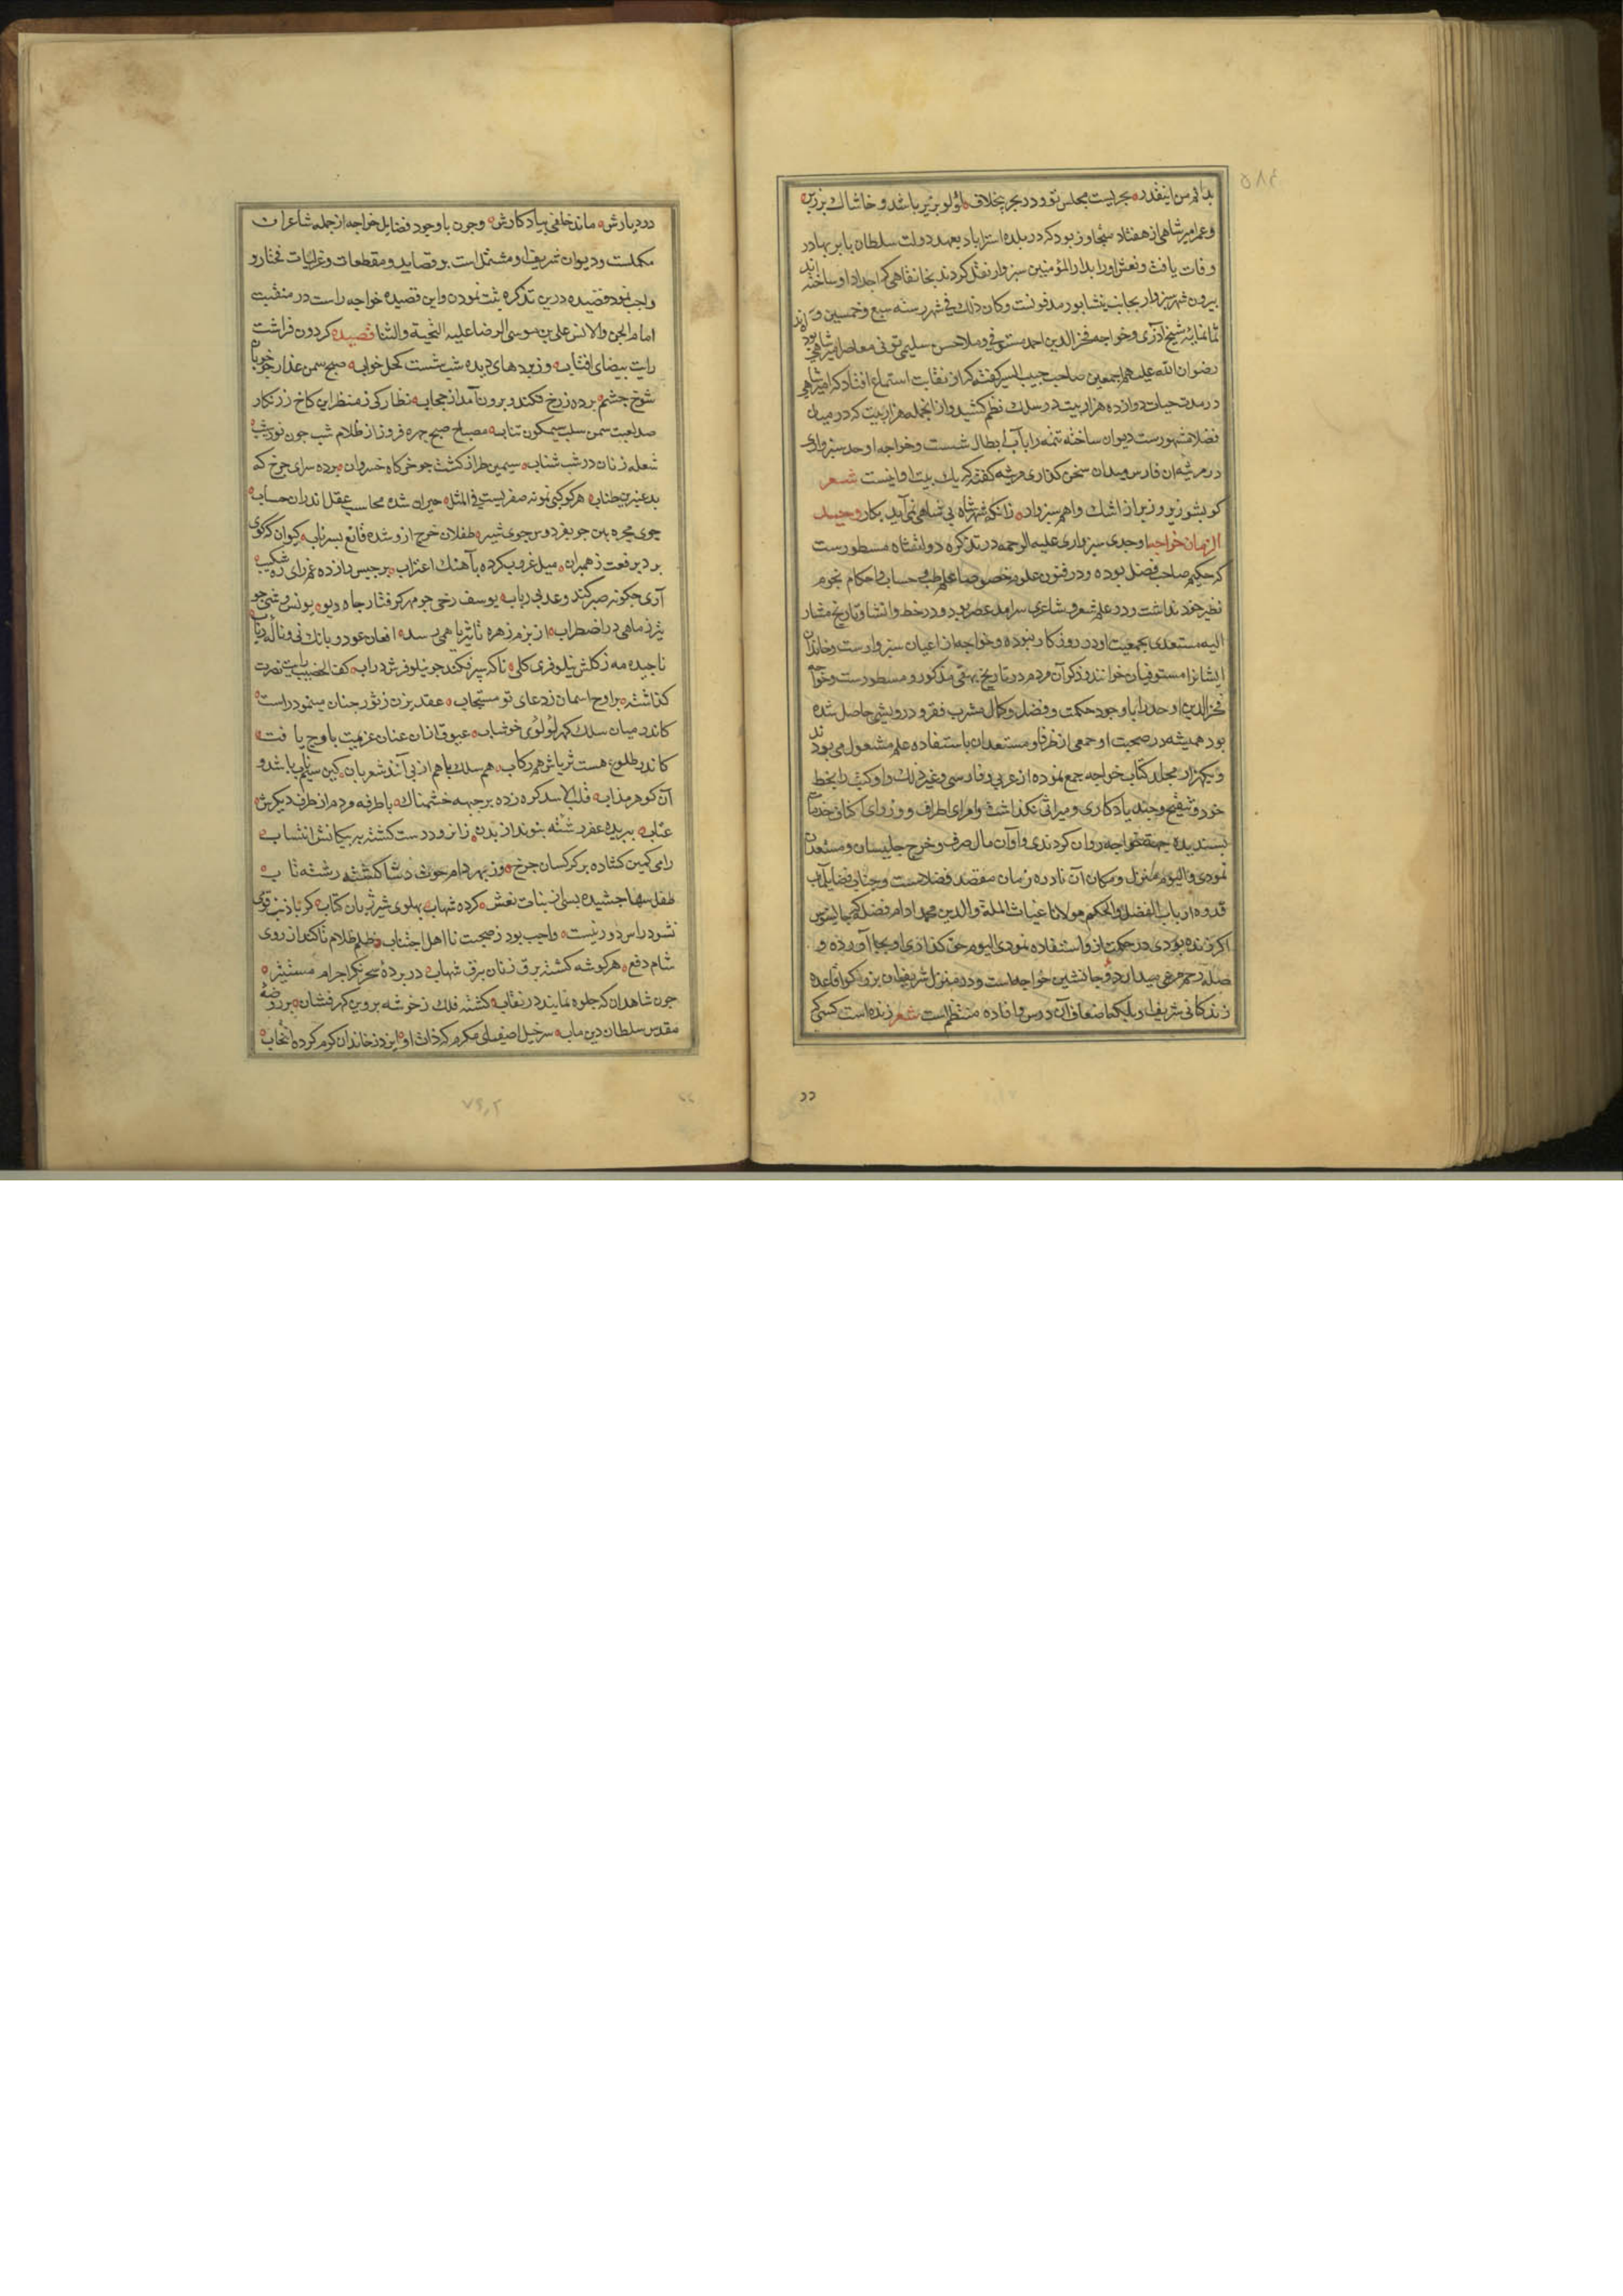 بدانم من اینقدر بحریست مجلس تو و در بحر بیخلاف لؤلؤ بزیر باشد و خاشاك بر زبر
و عمر امیر شاهی از هفتاد متجاوز بود که در بلده استراباد بعهد دولت سلطان بابر بهادر
وفات یافت و نعش اورا بدار المؤمنین سبزوار نقل کردند بخانقاهی که اجداد او ساخته اند
بیرون شهر سبزوار بجانب نیشابور مدفونست و کان ذلك فی شهر سنه سبع و خمسین و
ثمانمایه شیخ آذری و خواجه فخر الدین احمد مستوفی و ملا حسن سلیمی تونی معاصر امیر شاهی بوده اند
رضوان الله علیهم اجمعین صاحب حبیب السیر گفته که از ثقات استماع افتاد که امیر شاهی
در مدت حیات دوازده هزار بیت در سلك نظم کشید و از انجمله هزار بیت که در میان
فضلا مشهورست دیوان ساخته تتمه را بآب ابطال شست و خواجه اوحد سبزواری
در مرثیه ان فارس میدان سخن گذاری مرثیه گفته که یك بیت او اینست شعر
کو بشو زیر و زبر از اشك و اهم سبزوار زانکه شهر شاه بی شاهی نمی آید بکار وحید
الزمان خواجه اوحدی سبزواری علیه الرحمه در تذکره دولتشاه مسطورست
که حکیم صاحب فضل بوده و در فنون علوم خصوصا علم طب و حساب و احکام نجوم
نظیر خود نداشت و در علم شعر و شاعری سرامد عصر بود و در خط و انشا و تاریخ مشار
الیه مستعدی بجمعیت او در روزکار نبوده و خواجه از اعیان سبزوارست و خاندان
ایشانرا مستوفیان خوانند و ذکر آن مردم در تاریخ بیهقی مذکور و مسطورست و خواجه
فخر الدین اوحد را با وجود حکمت و فضل و کمال مشرب فقر و درویشی حاصل شده
بود همیشه در صحبت او جمعی از ظرفا و مستعدان باستفاده علم مشغول می بودند
و یکهزار مجلد کتاب خواجه جمع نموده از عربی و فارسی و غیر ذلك و اکثر را بخط
خود و تنقیح و چند یادکاری و میراثی نگذاشت و امرای اطراف و وزرای اکناف خدمات
پسندیده جهة خواجه روان کردندی و او آن مال صرف و خرج جلیسان و مستعدان
نمودی و الیوم منزل و مکان آن نادره زمان مقصد فضلاست و جناب فضایل مآب
قدوه ارباب الفضل و الحکم مولانا غیاث الملة و الدین محمد ادام فضله که جالینوس
اکر زنده بودی در حکمت ازو استفاده نمودی الیوم حق گذاری او بجا آورده و
صله رحم مرعی میدارد و جانشین خواجه است و در منزل شریف ان بزرکوار قاعده
زندکانی شریف او بلکه اضعاف آن درس و افاده منتظم است شعر زنده است کسی که
در دیارش ماند خلفی بیادکارش و چون با وجود فضایل خواجه از جمله شاعران
مکملست و دیوان شریف او مشتمل است بر قصاید و مقطعات و غزلیات مختار و
واجب نمود قصیده درین تذکره ثبت نمودن و این قصیده خواجه راست در منقبت
امام الجن و الانس علی بن موسی الرضا علیه التحیة و الثنا قصیده کردون فراشت
رایت بیضای افتاب وز پرده های دیده شب شست کحل خواب صبح سمن عذار چو خوبان
شوخ چشم پرده ز رخ فکند و برون آمد از حجاب نظارکی ز منظر این کاخ زرنکار
صد لعبت سمن سلب سیمکون نتاب مصباح صبح چهره فروز از ظلام شب چون نور شیب
شعله زنان در شب شباب سیمین طراز کشت چو خرکاه خسروان پرده سرای چرخ که
بد عنبرین طناب هر کوکبی نمونه صفریست فی المثل حیران شده محاسب عقل اندران حساب
جوی مجره بین چو بفردوس جوی شیر طفلان چرخ ازو شده قانع بسر ناب کیوان که کوی
برد برفعت ز همبران میل غروب کرده بآهنك اغتراب برجیس وازده غم زای ره شکیب
آری چکونه صبر کند وعد بی رباب یوسف رخی چو مهر گرفتار چاه دیو یونس وشی چو
تیر ز ماهی در اضطراب از بزم زهره تا بثریا همی رسد افغان عود و بانك نی و ناله رباب
ناچیده مه ز کلشن نیلوفری کلی ناکه سپر فکند چو نیلوفرش در اب کف الخضیب رایت نصرت
کذاشته بر اوج اسمان ز دعای تو مستجاب عقد پرن ز ثور چنان مینمود راست
کاندر میان سلك کهر لؤلؤی خوشاب عیوق ازان عنان عزیمت باوج یافت
کاندر طلوع هست ثریاش هم رکاب هم سلك با هم از بی آنند شعریان کین سیم ناب باشد و
آن کوهر مذاب قلب الاسد کره زده بر جبهه خشمناك با طرفه و دم از طرف دیکرش
عتاب ببریده عفر رشته پیوند از بدن زان رو ددست کشته به پیکانش انتساب
رامی کمین کشاده بر کرکسان چرخ وز بهر دام حوت دشا کشته رشته تاب
طفل سها چشیده بسی از بنات نعش کرده شهاب پهلوی شیر ژیان کتاب کر با ذنب قوی
نشود راس دور نیست واجب بود ز صحبت نا اهل اجتناب ظلم ظلام تا کند از روی
شام دفع هر کوشه کشته برق زنان برق شهاب در پرده سحر نکر اجرام مستنیر
چون شاهدان که جلوه نمایند در نقاب کشته فلك ز خوشه پروین کهر فشان بر روضه
مقدس سلطان دین ماب سرخیل اصفیا علی مکرم که ذات او ایزد ز خاندان کرم کرده انتخاب